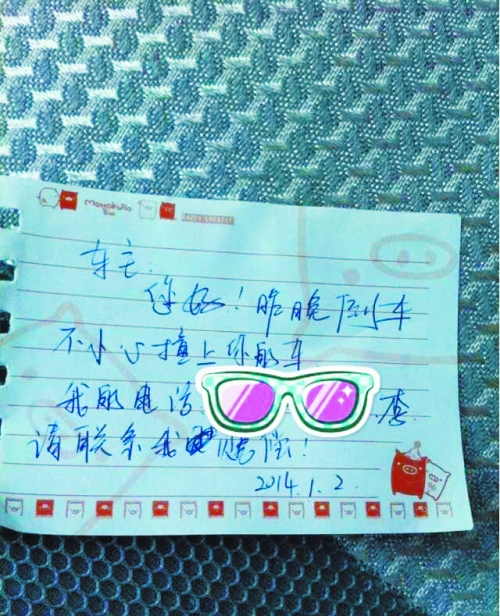 MonokuRo Boo
车主:
你好！昨晚倒车
不小心撞上你的车
我的电话 李
请联系我 赔偿！
2014.1.2.